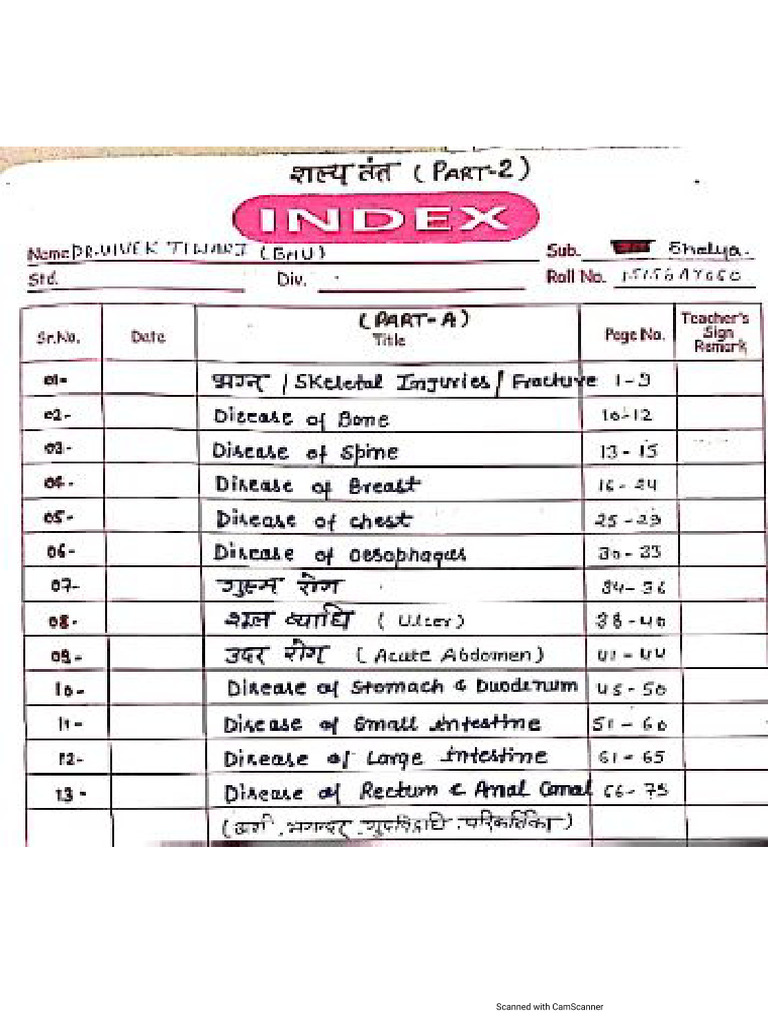 शल्य तंत (PART-2)
INDEX
Name DR.VIVEK TIWARI (BHU) Sub. Shalya.
Std. Div. Roll No.
(PART-A)
Sr.No. Date Title Page No. Teacher's Sign Remark
01- भग्न / Skeletal Injuries / Fracture 1-9
02- Disease of Bone 10-12
03- Disease of Spine 13-15
04- Disease of Breast 16-24
05- Disease of chest 25-29
06- Disease of Oesophagus 30-33
07- गुल्म रोग 34-36
08- शूल व्याधि (Ulcer) 38-40
09- उदर रोग (Acute Abdomen) 41-44
10- Disease of Stomach & Duodenum 45-50
11- Disease of Small Intestine 51-60
12- Disease of Large Intestine 61-65
13- Disease of Rectum & Anal Canal 66-75
(अर्श, भगन्दर, गुदविद्रधि, परिकर्तिका)
Scanned with CamScanner